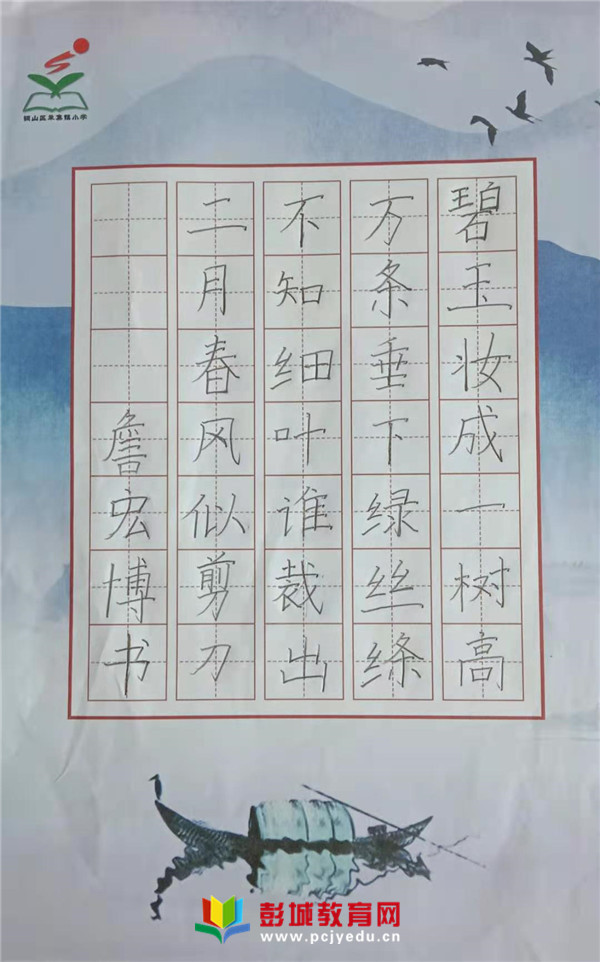 铜山区单集镇小学
碧玉妆成一树高
万条垂下绿丝绦
不知细叶谁裁出
二月春风似剪刀
詹宏博书
彭城教育网
www.pcjyedu.cn